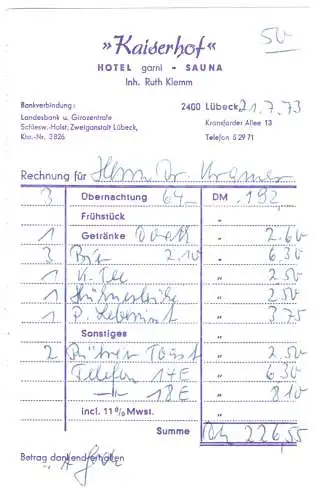 50
»Kaiserhof«
HOTEL garni - SAUNA
Inh. Ruth Klemm
Bankverbindung:
Landesbank u. Girozentrale
Schlesw.-Holst. Zweiganstalt Lübeck,
Kto.-Nr. 3826
2400 Lübeck 21.7.73
Kronsforder Allee 13
Telefon 5 29 71
Rechnung für Herrn Dr. Kramer
3 Übernachtung 64,— DM 192
Frühstück "
1 Getränke " 2.60
3 Bier 2.10 " 6.30
1 K. Tee " 2.50
1 " 2.50
1 P. " 3.75
Sonstiges "
2 Toast " 2.50
Telefon 14 E " 6.30
—"— 18 E " 8.10
incl. 11% Mwst. "
Summe DM 226,55
Betrag dankend erhalten